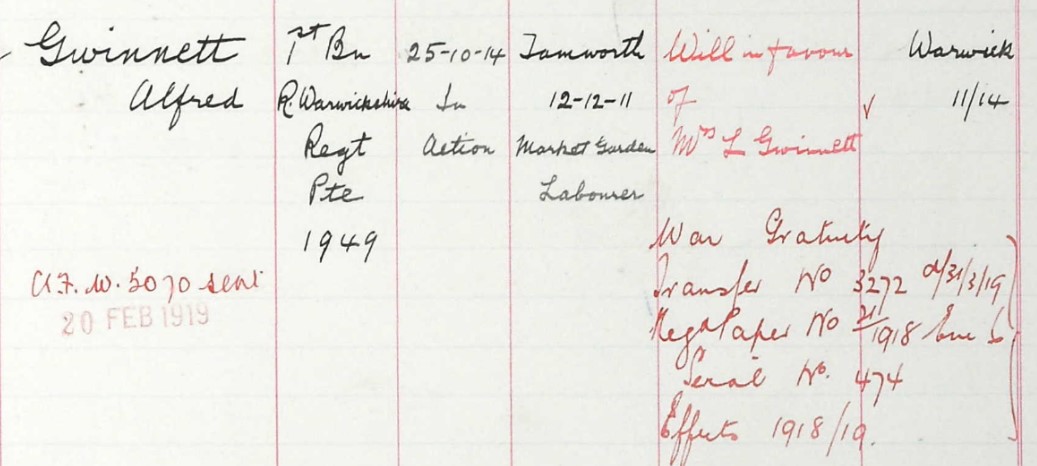 Gwinnett 1st Bn 25-10-14 Tamworth Will in favour Warwick
Alfred R. Warwickshire In 12-12-11 of 11/14
Regt Action Market Garden Mrs L Gwinnett
Pte Labourer
1949 War Gratuity
A.F.W. 5070 sent Transfer No 3272 d/31/3/19
20 FEB 1919 Regd Paper No 21/1918
Serial No. 474
Effects 1918/19.